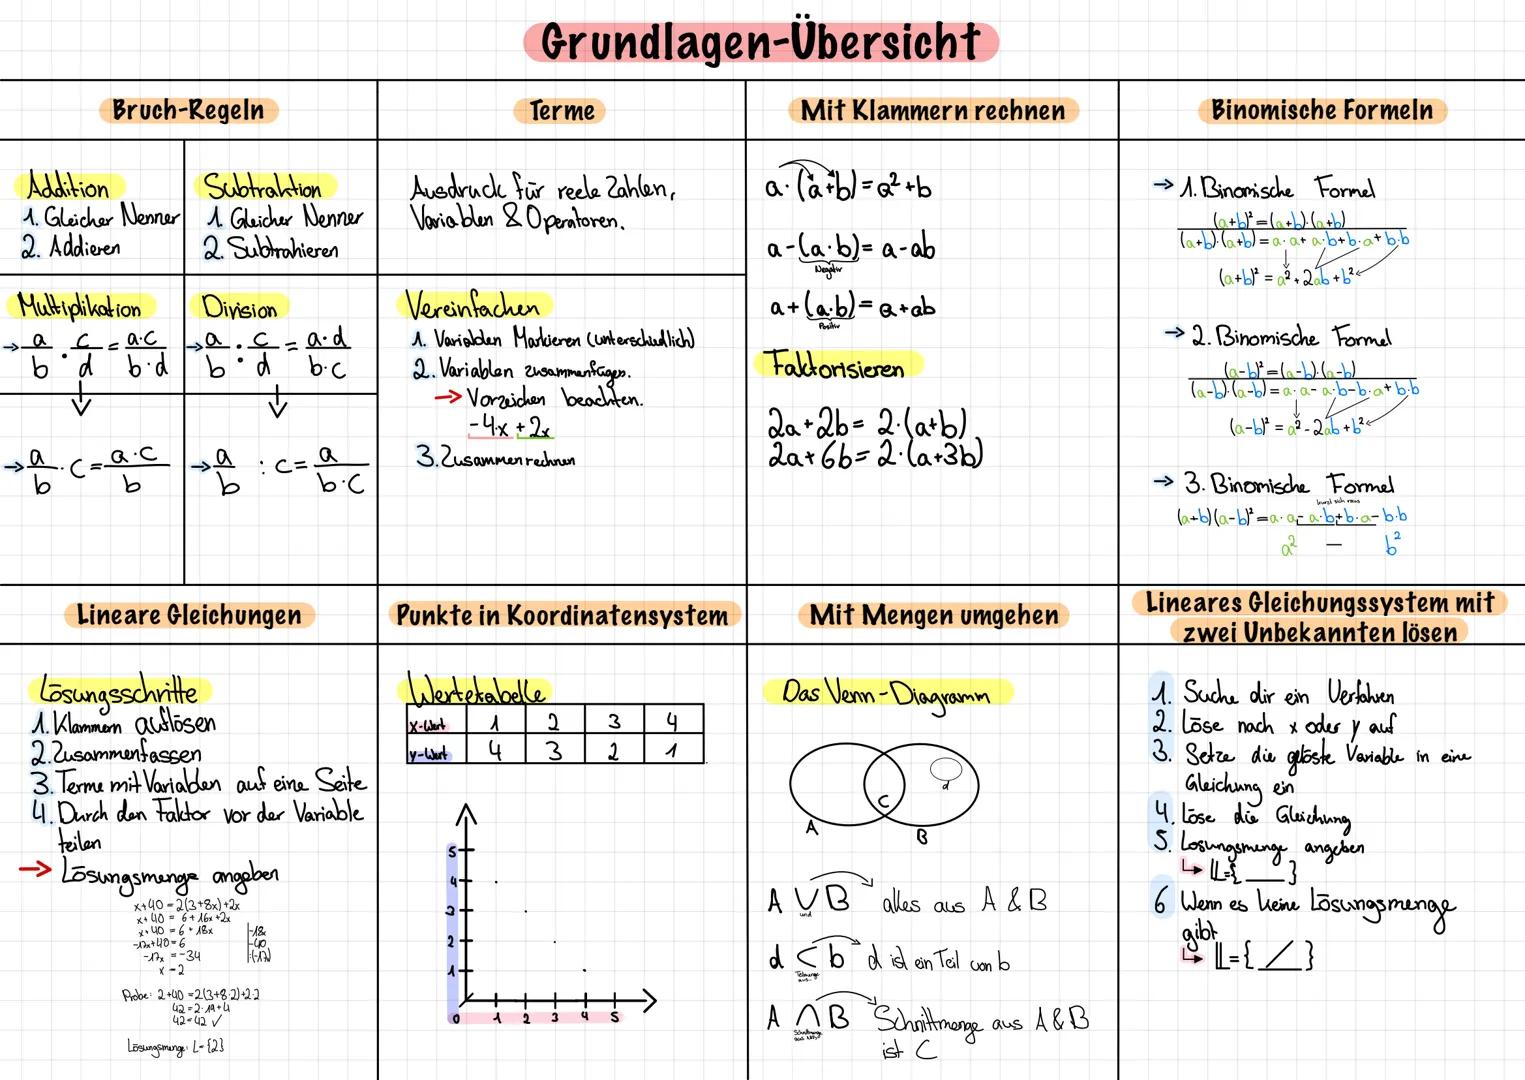 Grundlagen-Übersicht
Bruch-Regeln
Addition
1. Gleicher Nenner
2. Addieren
Subtraktion
1. Gleicher Nenner
2. Subtrahieren
Multiplikation
→ a/b · c/d = a·c/b·d
→ a/b · c = a·c/b
Division
→ a/b : c/d = a·d/b·c
→ a/b : c = a/b·c
Terme
Ausdruck für reele Zahlen,
Variablen & Operatoren.
Vereinfachen
1. Variablen Markieren (unterschiedlich)
2. Variablen zusammenfügen.
→ Vorzeichen beachten.
-4x + 2x
3. Zusammenrechnen
Mit Klammern rechnen
a·(a+b) = a² + b
a-(a·b) = a-ab
Negativ
a+(a·b) = a+ab
Positiv
Faktorisieren
2a+2b = 2·(a+b)
2a+6b = 2·(a+3b)
Binomische Formeln
→ 1. Binomische Formel
(a+b)² = (a+b)·(a+b)
(a+b)·(a+b) = a·a + a·b + b·a + b·b
(a+b)² = a² + 2ab + b²
→ 2. Binomische Formel
(a-b)² = (a-b)·(a-b)
(a-b)·(a-b) = a·a - a·b - b·a + b·b
(a-b)² = a² - 2ab + b²
→ 3. Binomische Formel
kürzt sich raus
(a+b)(a-b)² = a·a - a·b + b·a - b·b
a² — b²
Lineare Gleichungen
Lösungsschritte
1. Klammern auflösen
2. Zusammenfassen
3. Terme mit Variablen auf eine Seite
4. Durch den Faktor vor der Variable
teilen
→ Lösungsmenge angeben
x+40 = 2(3+8x)+2x
x+40 = 6+16x+2x
x+40 = 6+18x |-18x
-17x+40 = 6 |-40
-17x = -34 |:(-17)
x = 2
Probe: 2+40 = 2(3+8·2)+2·2
42 = 2·19+4
42 = 42 ✓
Lösungsmenge: L={2}
Punkte in Koordinatensystem
Wertetabelle
x-Wert 1 2 3 4
y-Wert 4 3 2 1
5
4
3
2
1
0 1 2 3 4 5
Mit Mengen umgehen
Das Venn-Diagramm
d
C
A
B
A ∪ B alles aus A & B
und
d ⊂ b d ist ein Teil von b
Teilmenge
aus
A ∩ B Schnittmenge aus A & B
Schnittmenge
ist C
Lineares Gleichungssystem mit
zwei Unbekannten lösen
1. Suche dir ein Verfahren
2. Löse nach x oder y auf
3. Setze die gelöste Variable in eine
Gleichung ein
4. Löse die Gleichung
5. Lösungsmenge angeben
↳ 𝕃={ ___ }
6 Wenn es keine Lösungsmenge
gibt
↳ 𝕃={ / }